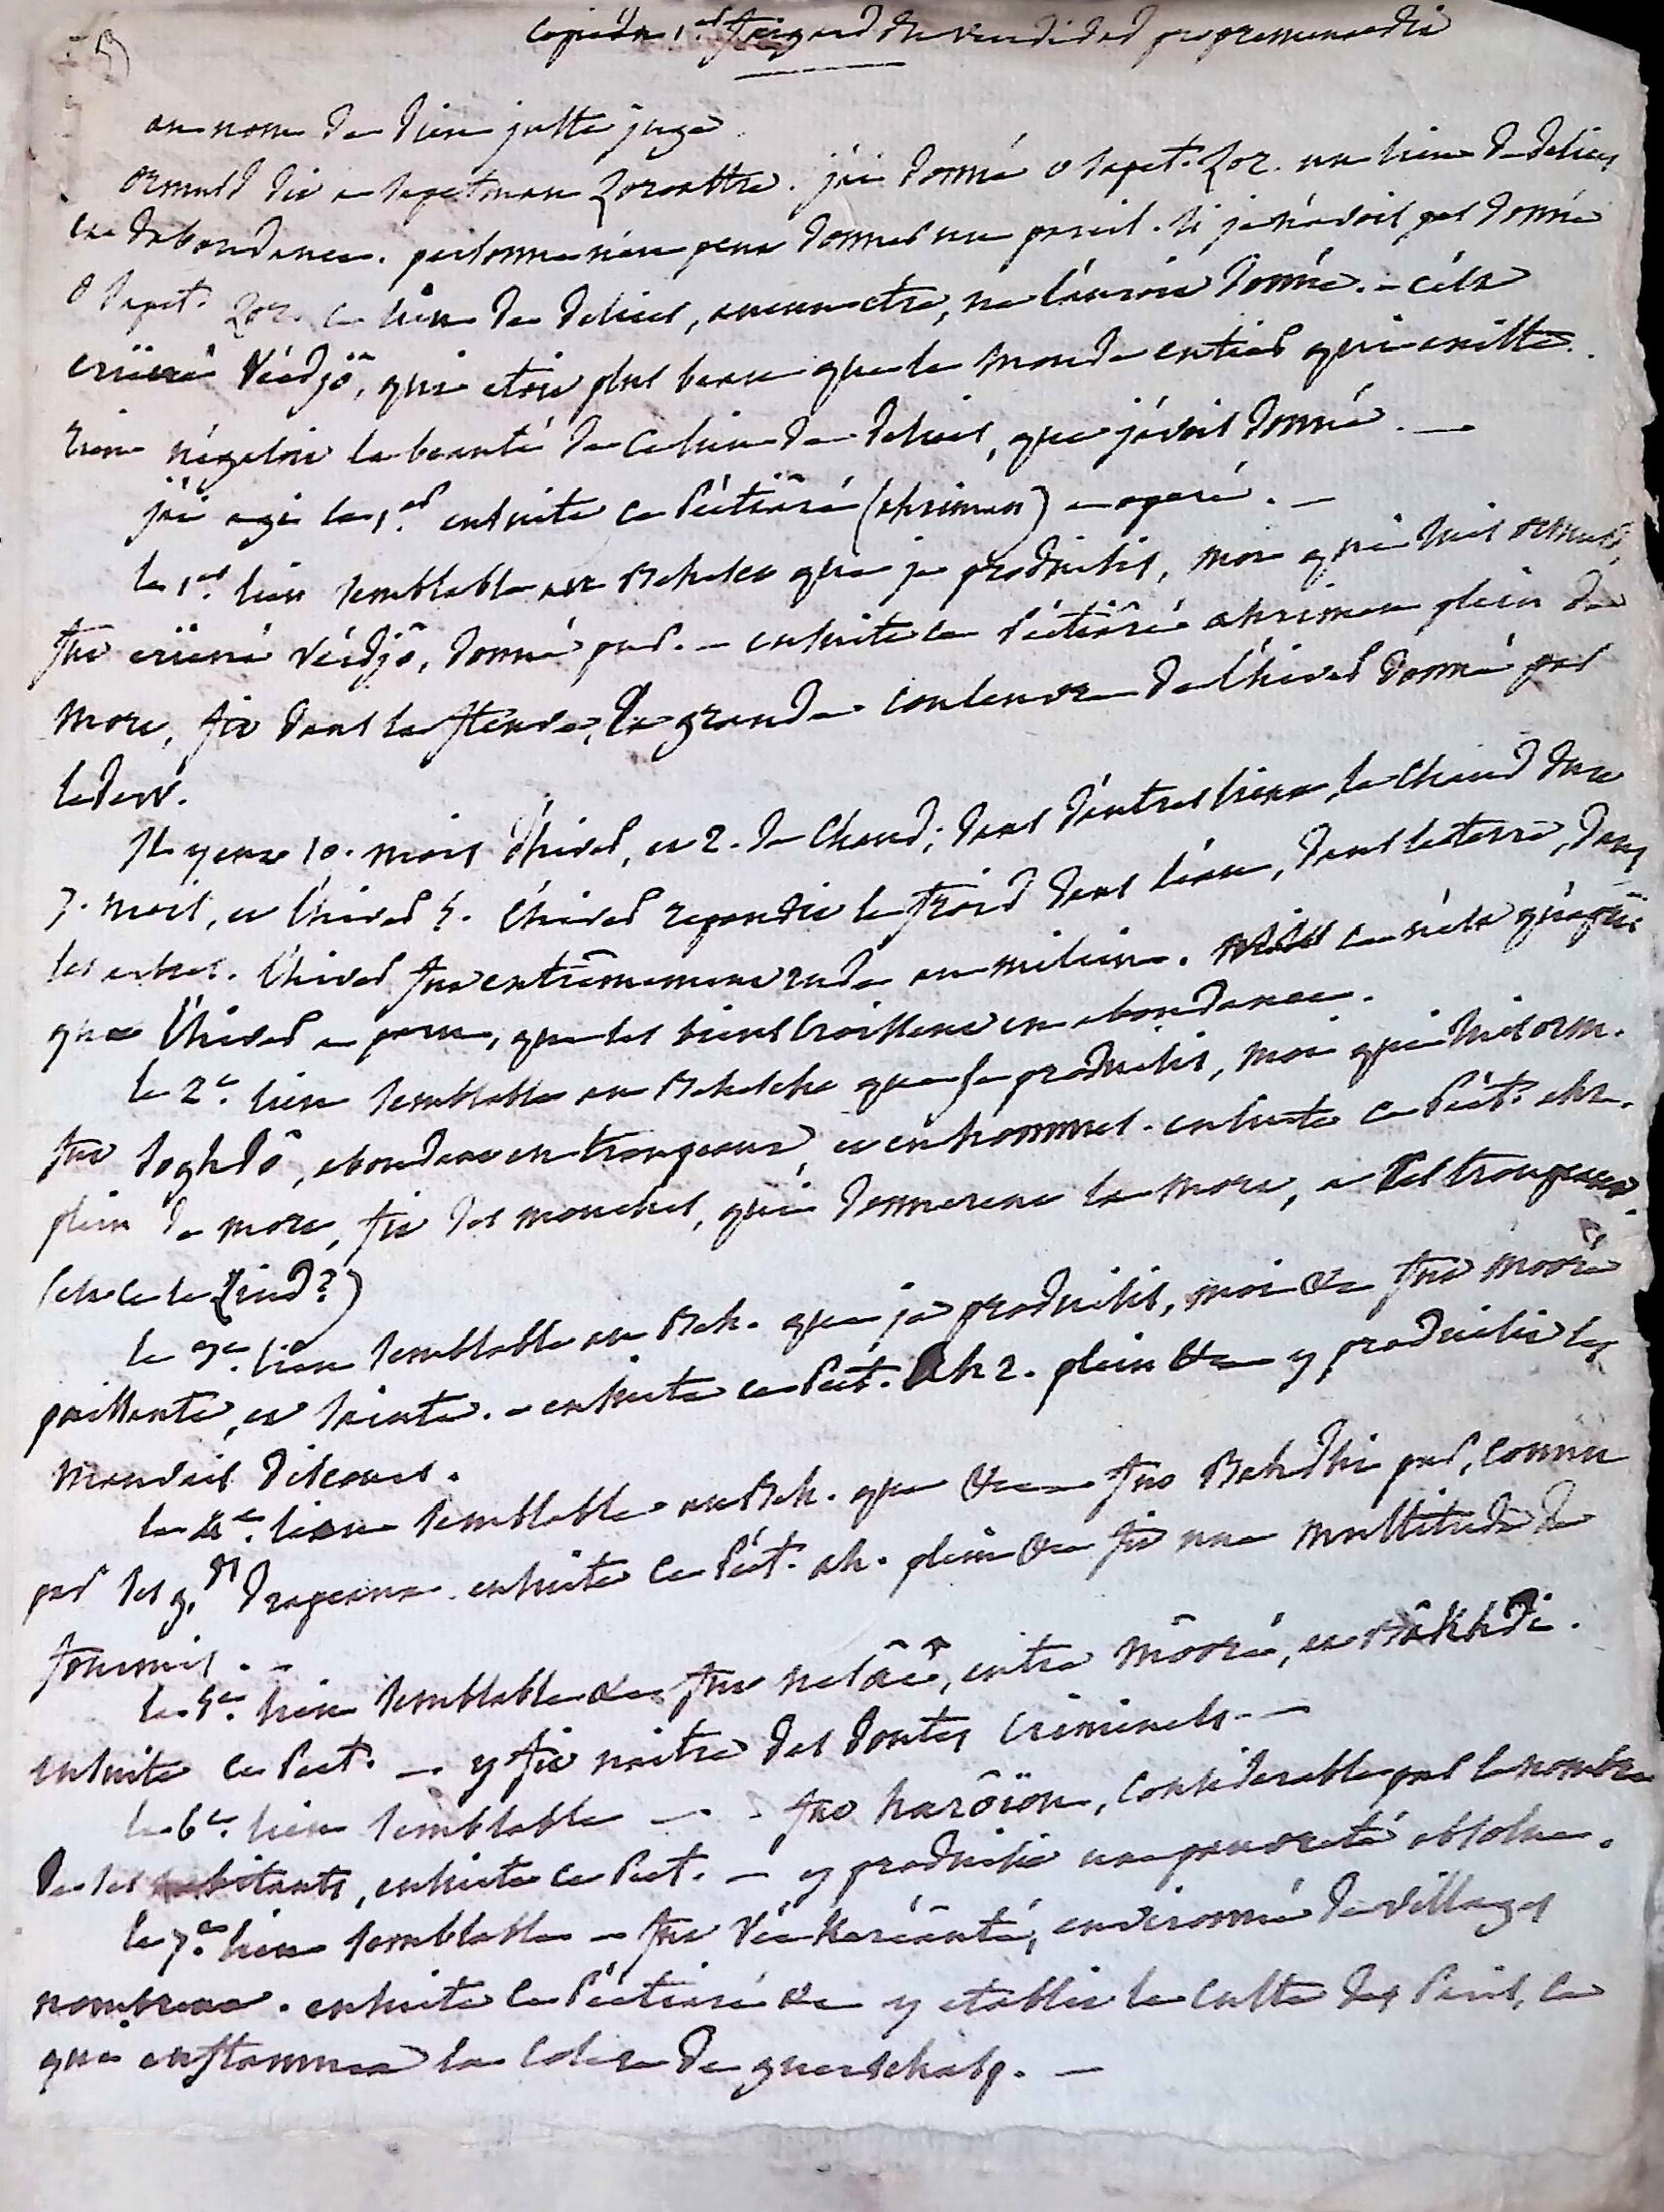 copie du 1.er fargard du vendidad proprement dit
au nom de dieu juste juge.
ormusd dit a sapetman Zoroastre. j'ai donné o sapet. Zor. un lieu de delices
et d'abondance. personne n'en peut donner un pareil. si je n'avois pas donné
o sapet. Zor. ce lieu de delices, aucun etre, ne l'auroit donné. - c'est
eriiené véedjô, qui etoit plus beau que le monde entier qui existe.
rien n'egaloit la beauté de ce lieu de delices, que j'avois donné. —
j'ai agi le 1.er ensuite ce Péetiâré (ahriman) a operé. —
le 1.er lieu semblable au Behescht que je produisis, moi qui suis ormusd,
fut eriiené véedjô, donné pur. — ensuite ce Péetiâré ahriman plein de
mort, fit dans le fleuve, la grande couleuvre de l'hiver donné par
le dew.
Il y eut 10. mois d'hiver, et 2. de chaud; dans d'autres lieux, le chaud dure
7. mois, et l'hiver 5. l'hiver repandit le froid dans l'eau, dans la terre, dans
les arbres. l'hiver fut extrêmement rude au milieu. mais ce n'est qu'après
que l'hiver a paru, que les biens croissent en abondance.
le 2.e lieu semblable au Behescht que je produisis, moi qui suis orm.
fut soghdô, abondant en troupeaux et en hommes. ensuite ce Péet. ahr.
plein de mort, fit des mouches, qui donnerent la mort, a des troupeaux.
(est ce le Sind?)
le 3.e lieu semblable au Beh. que je produisis, moi &c fut moôré
puissante, et sainte. — ensuite ce Péet. Ahr. plein &c y produisit les
mauvais discours.
le 4.e lieu semblable au Beh. que &c fut Bakhdhi pur, connu
par ses g.ds drapeaux. ensuite ce Péet. ah. plein &c fit une multitude de
fourmis. -
le 5.e lieu semblable &c fut nesâé, entre môoré, et Bâkhdi.
ensuite ce Peet. — y fit naitre des doutes criminels. —
le 6.e lieu semblable — fut harôïou, considerable par le nombre
de ses habitants, ensuite ce Peet. — y produisit une pauvreté absolue.
le 7.e lieu semblable — fut véekéréanté, environné de villages
nombreux. ensuite ce Péetiaré &c y etablit le culte des Paris, ce
qui enflamma la colere de guerschasp. —